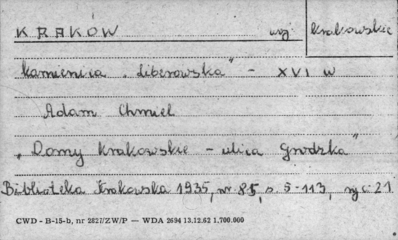 KRAKÓW woj. krakowskie
kamienica „Liberowska" - XVI w
Adam Chmiel
„Domy krakowskie - ulica Grodzka"
Biblioteka Krakowska 1935, nr. 85, s. 5-113, ryc. 21.
CWD - B-15-b, nr 2827/ZW/P — WDA 2694 13.12.62 1.700.000